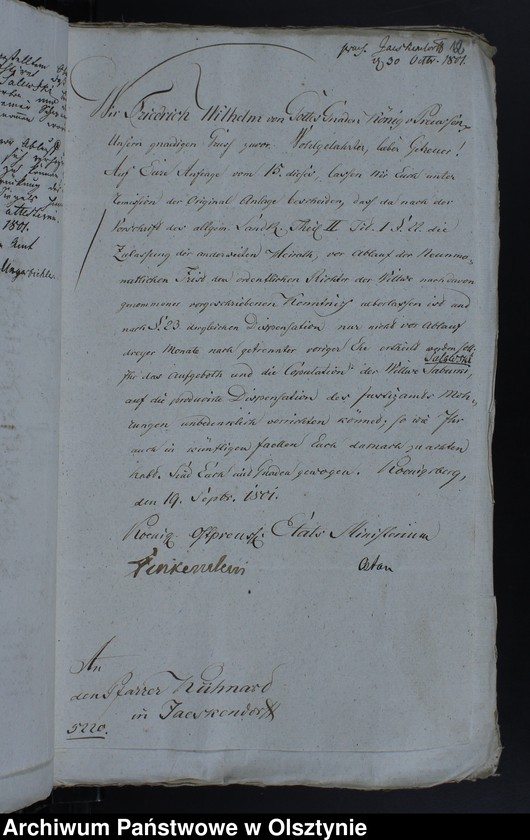 praes. Jaeskendorff
d 30 Octbr. 1801.
Wir Friedrich Wilhelm von Gottes Gnaden König v Preussen
Unsern gnädigen Gruß zuvor. Wohlgelahrter, lieber Getreuer!
Auf Eure Anfrage vom 15. dieses, lassen wir Euch unter
Remission der Original Anlage bescheiden, daß da nach der
Vorschrift des allgem. Landr. Theil II Tit. 1 §. 22 die
Zulassung der anderweiten Heirath, vor Ablauf der Neunmo-
natlichen Frist den ordentlichen Richter der Wittwe nach davon
genommener vorgeschriebenen Kenntniß ueberlassen ist und
nach §. 23 dergleichen Dispensation nur nicht vor Ablauf
dreyer Monate nach getrennter voriger Ehe ertheilt werden soll
Ihr das Aufgeboth und die Copulation der Wittwe
auf die producirte Dispensation des Justizamts Moh-
rungen unbedenklich verrichten könnet, so wie Ihr
auch in künftigen Faellen Euch darnach zu achten
habt. Sind Euch mit Gnaden gewogen. Koenigsberg,
den 19. Septbr. 1801.
Koenig. Ostpreuss. Etats Ministerium
Finkenstein
An
den Pfarrer
in Jaeskendorff
5220.
1801.
Amt
Archiwum Państwowe w Olsztynie